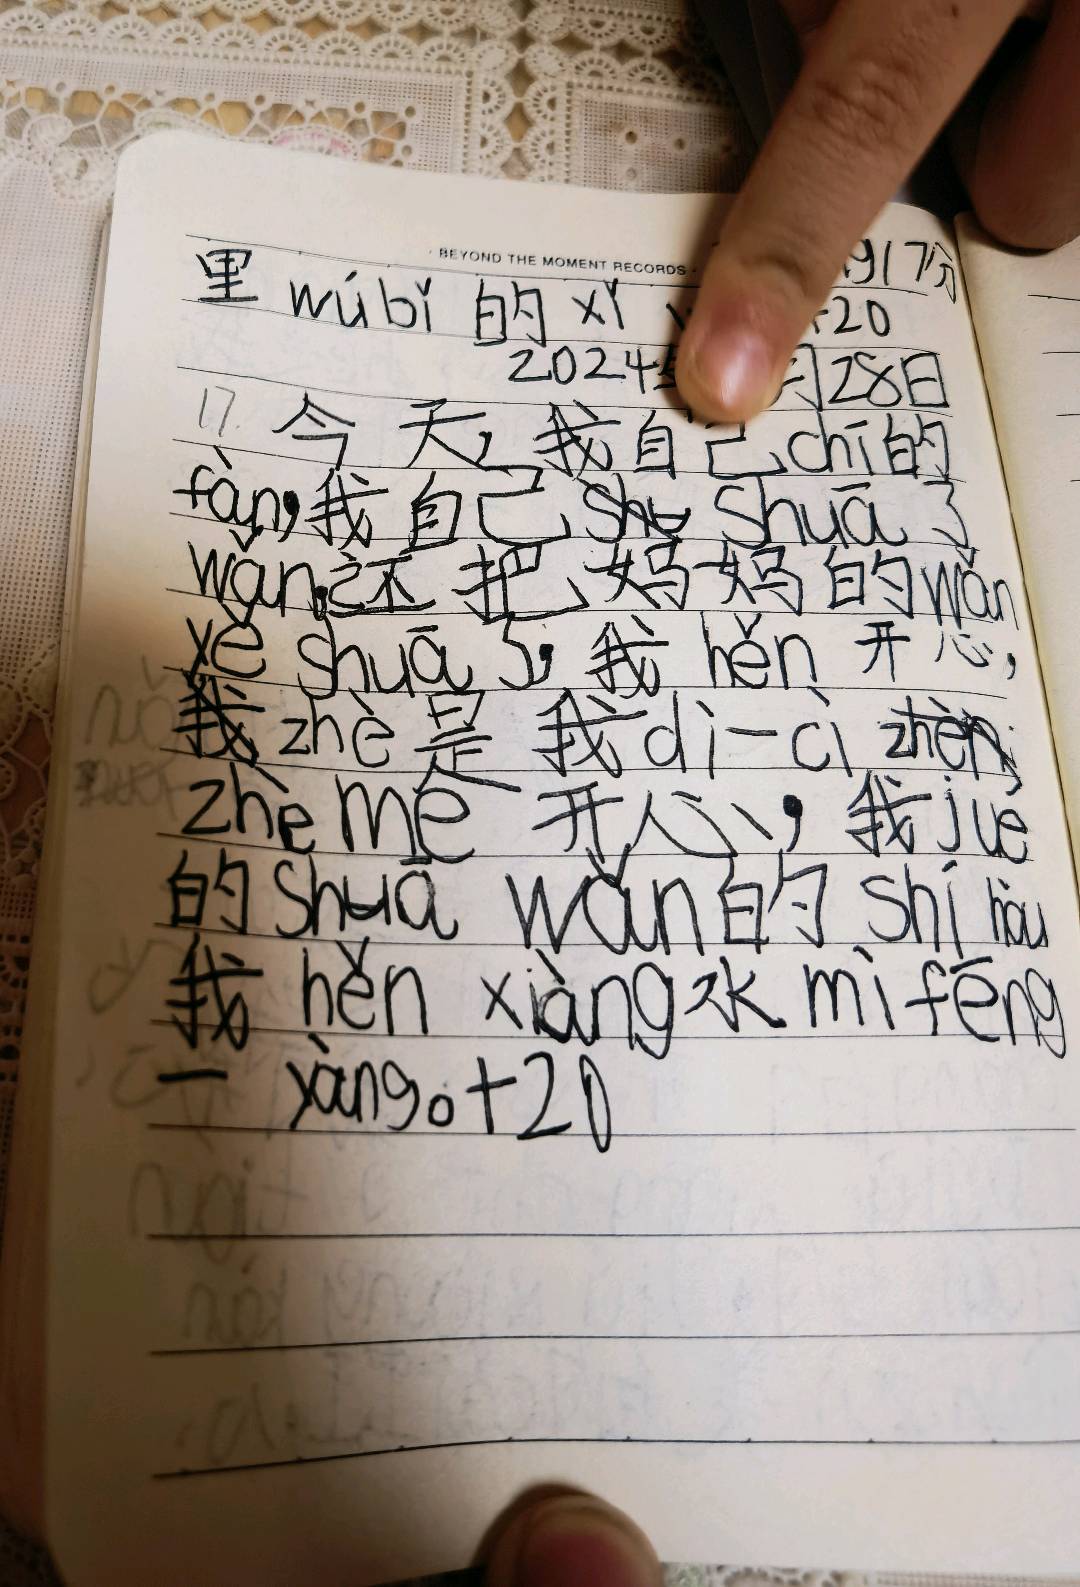 · BEYOND THE MOMENT RECORDS ·
917分
里 wúbǐ 的 xǐ +20
2024 月28日
17. 今天，我自己chī的
fàn，我自己 shuā 了
wǎn，还把妈妈的wǎn
yě shuā 了，我 hěn 开心，
zhè 是 我 dì一cì
zhè me 开心，我 jué
的 shuā wǎn 的 shí hòu
我 hěn xiàng 水 mì fēng
一 yàng。+20